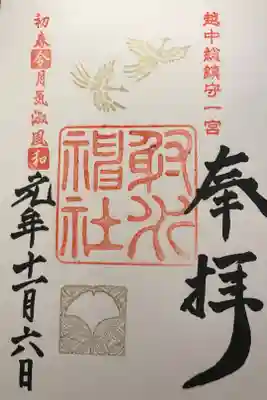 越中総鎮守一宮
奉拝
射水神社
初春令月気淑風和
元年十一月六日